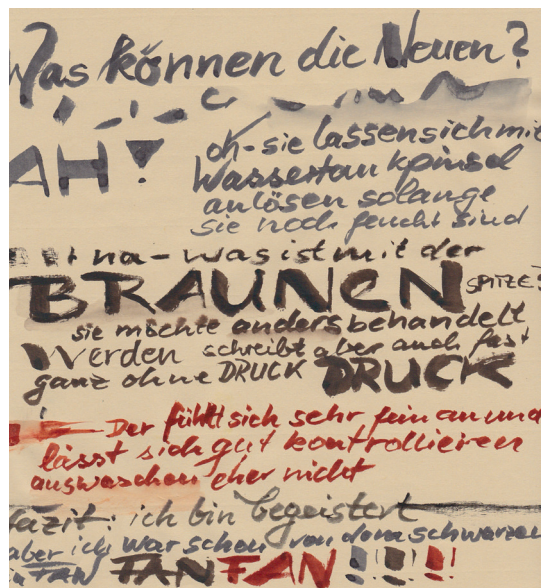 Was können die Neuen?
AH!
oh-sie lassen sich mit
Wassertankpinsel
anlösen solange
sie noch feucht sind
!!! + na - was ist mit der
BRAUNEN SPITZE?
sie möchte anders behandelt
werden schreibt aber auch fast
ganz ohne DRUCK DRUCK
Der fühlt sich sehr fein an und
lässt sich gut kontrollieren
auswaschen eher nicht
fazit: ich bin begeistert
aber ich war schon von dem schwarzen
FAN FAN FAN !!!!!